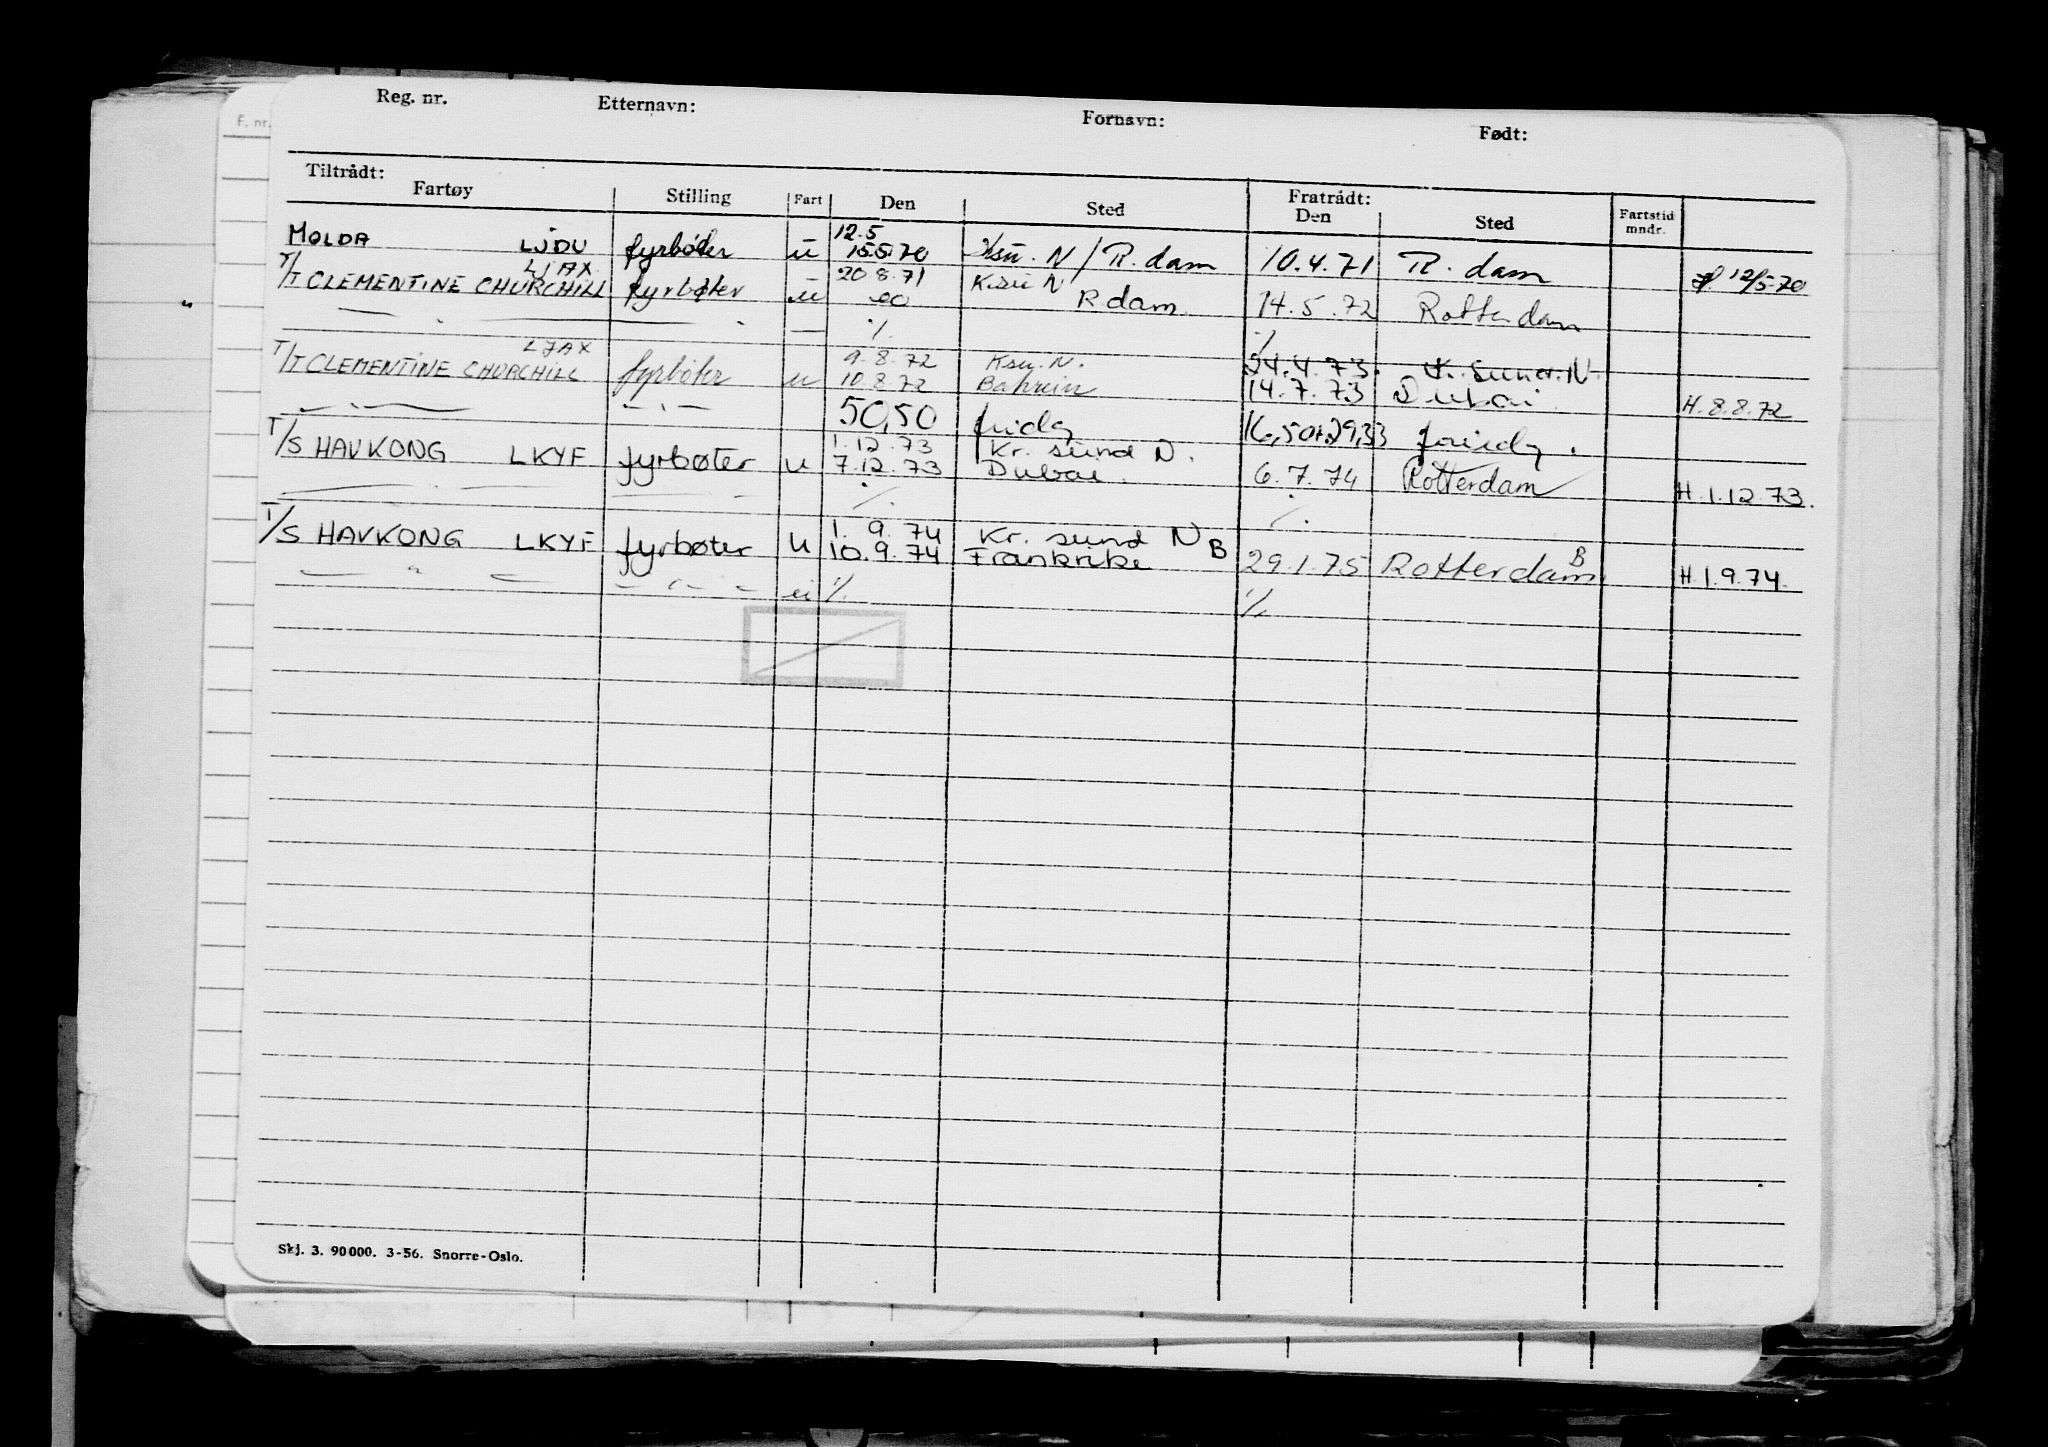 F. nr.
Reg. nr. Etternavn: Fornavn: Født:
Tiltrådt: Fratrådt:
Fartøy Stilling Fart Den Sted Den Sted Fartstid mndr.
12.5
MOLDA LJDU fyrbøter u 15.5.70 Ksu. N / R. dam 10.4.71 R. dam 12/5-70
LJAX 20.8.71 K.su N
T/T CLEMENTINE CHURCHILL fyrbøter u R dam. 14.5.72 Rotterdam
— " — — ./. ./.
LJAX 9.8.72 Ksu. N. 24.4.73. K. sund. N.
T/T CLEMENTINE CHURCHILL fyrbøter u 10.8.72 Bahrein 14.7.73 Dubai. H. 8.8.72
— " — — " — 50,50 16,50+29,33
1.12.73 Kr. sund N.
T/S HAVKONG LKYF fyrbøter u 7.12.73 Dubai. 6.7.74 Rotterdam H.1.12.73.
— " — — " — ./. ./.
1.9.74 Kr. sund N
T/S HAVKONG LKYF fyrbøter u 10.9.74 Frankrike B 29.1.75 Rotterdam B H.1.9.74.
— " — — " — u ./. ./.
Skj. 3. 90000. 3-56. Snorre-Oslo.